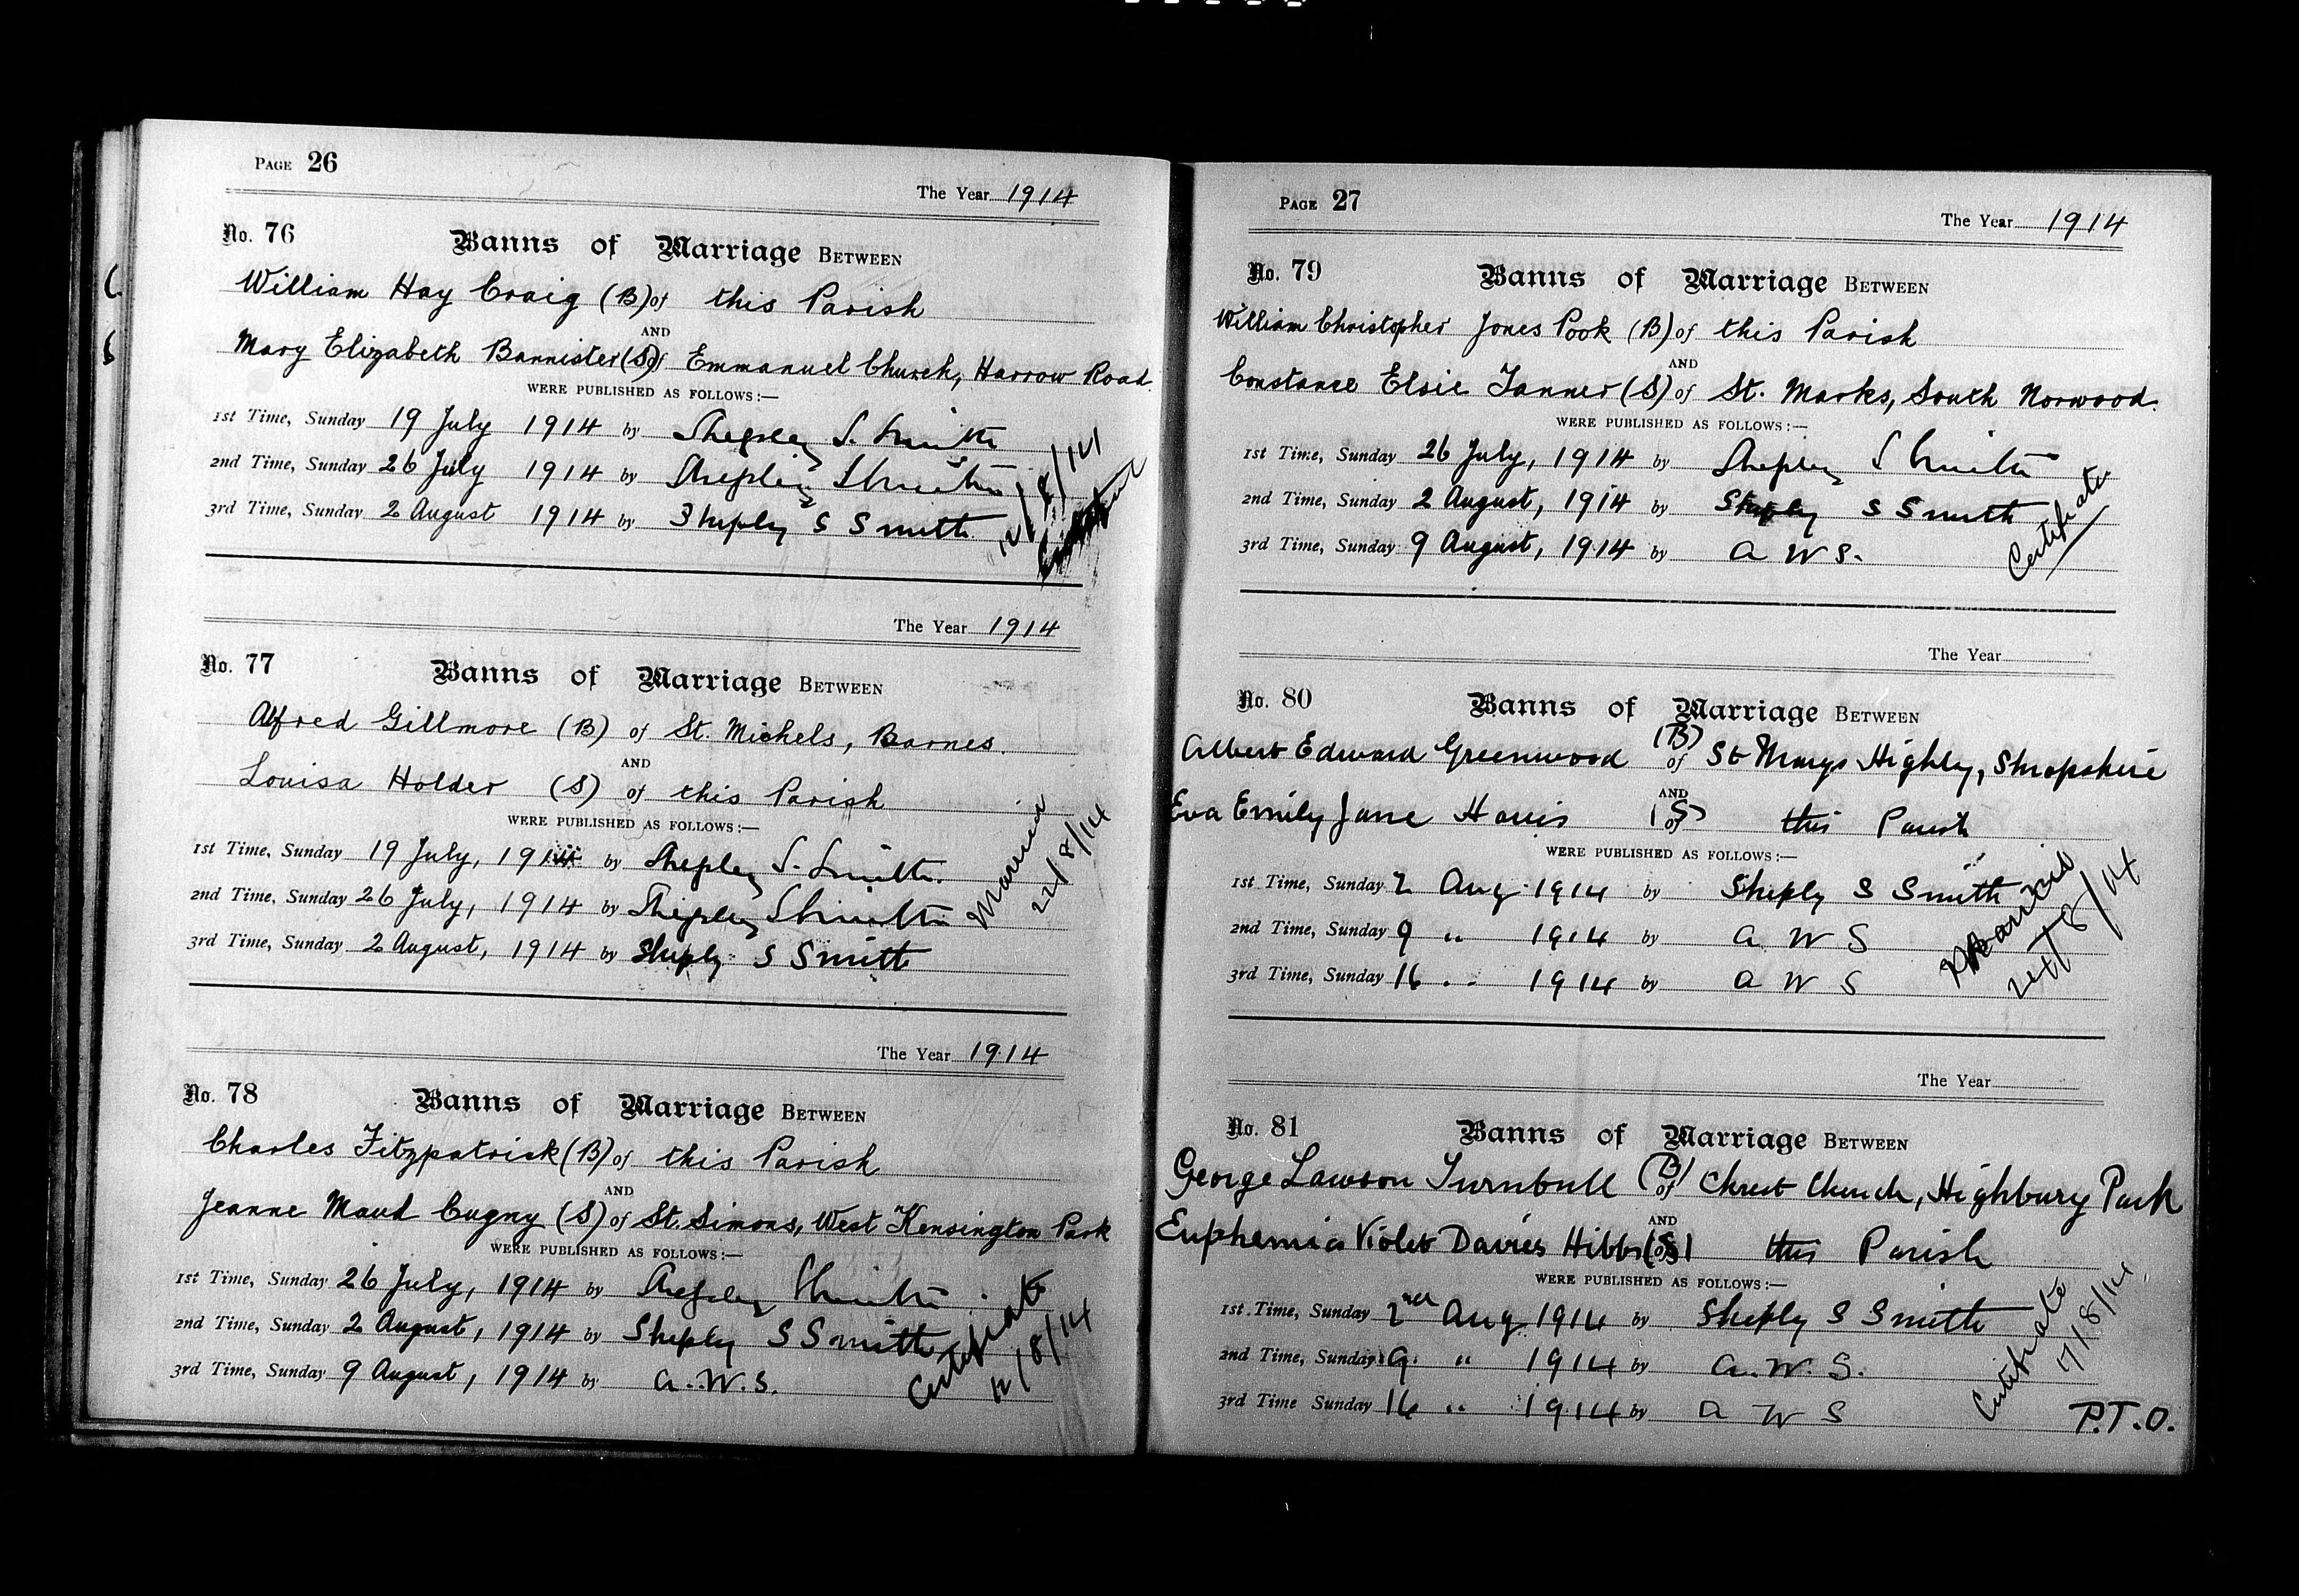 PAGE 26
The Year 1914
No. 76
Banns of Marriage BETWEEN
William Hay Craig (B) of this Parish
AND
Mary Elizabeth Bannister (S) of Emmanuel Church, Harrow Road
WERE PUBLISHED AS FOLLOWS :—
1st Time, Sunday 19 July 1914 by Shepley S. Smith
2nd Time, Sunday 26 July 1914 by Shepley S Smith
3rd Time, Sunday 2 August 1914 by Sheply S Smith
12/8/14
The Year 1914
No. 77
Banns of Marriage BETWEEN
Alfred Gillmore (B) of St. Michels, Barnes.
AND
Louisa Holder (S) of this Parish
WERE PUBLISHED AS FOLLOWS :—
1st Time, Sunday 19 July, 1914 by Shepley S. Smith.
2nd Time, Sunday 26 July, 1914 by Shepley S Smith
3rd Time, Sunday 2 August, 1914 by Sheply S Smith
Married
22/8/14
The Year 1914
No. 78
Banns of Marriage BETWEEN
Charles Fitzpatrick (B) of this Parish
AND
Jeanne Maud Cugny (S) of St. Simons, West Kensington Park
WERE PUBLISHED AS FOLLOWS :—
1st Time, Sunday 26 July, 1914 by Shepley S Smith
2nd Time, Sunday 2 August, 1914 by Sheply S Smith
3rd Time, Sunday 9 August, 1914 by A. W. S.
Certificate
12/8/14
PAGE 27
The Year 1914
No. 79
Banns of Marriage BETWEEN
William Christopher Jones Pook (B) of this Parish
AND
Constance Elsie Tanner (S) of St. Marks, South Norwood.
WERE PUBLISHED AS FOLLOWS :—
1st Time, Sunday 26 July, 1914 by Shepley S Smith
2nd Time, Sunday 2 August, 1914 by Sheply S Smith
3rd Time, Sunday 9 August, 1914 by A W S.
Certificate
The Year
No. 80
Banns of Marriage BETWEEN
Albert Edward Greenwood (B) of St Marys Highley, Shropshire
AND
Eva Emily Jane Harris (S) of this Parish
WERE PUBLISHED AS FOLLOWS :—
1st Time, Sunday 2 Aug 1914 by Sheply S Smith
2nd Time, Sunday 9 " 1914 by A W S
3rd Time, Sunday 16 " 1914 by A W S
Married
24/8/14
The Year
No. 81
Banns of Marriage BETWEEN
George Lawson Turnbull (B) of Christ Church, Highbury Park
AND
Euphemia Violet Davies Hibbs (S) of this Parish
WERE PUBLISHED AS FOLLOWS :—
1st Time, Sunday 2nd Aug 1914 by Sheply S Smith
2nd Time, Sunday 9 " 1914 by A. W. S.
3rd Time Sunday 16 " 1914 by A W S
Certificate
17/8/14
P.T.O.